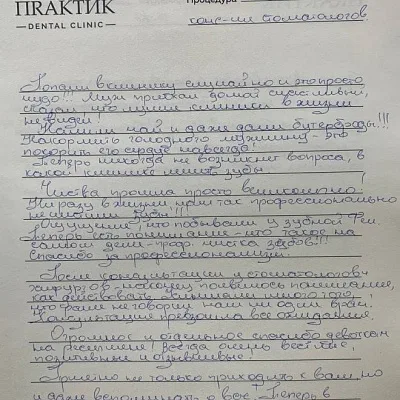 ПRАКТИК
— DENTAL CLINIC —
Процедура
конс-ии стоматологов
Попали в клинику случайно и это просто
чудо!!! Муж приехал домой счастливый,
сказал, что лучше клиники в жизни
не видел!
Напоили чай и даже дали бутерброды!!!
Накормить голодного мужчину - это
покорить его сердце навсегда!
Теперь никогда не возникнет вопроса, в
какой клинике лечить зубы.
Чистка прошла просто великолепно.
Ни разу в жизни нам так профессионально
не чистили зубы!!!
Ощущение, что побывали у зубной Феи.
Теперь есть понимание - что такое на
самом деле - проф. чистка зубов!!!
Спасибо за профессионализм.
После консультации у стоматологов
хирургов - наконец появилось понимание,
как действовать.
что ранее не говорил нам ни один врач.
Консультация превзошла все ожидания.
Огромное и отдельное спасибо девочкам
на ресепшене! Всегда очень вестлые,
позитивные и отзывчивые!
Приятно не только приходить к вам, но
и даже вспоминать о вас. Теперь в